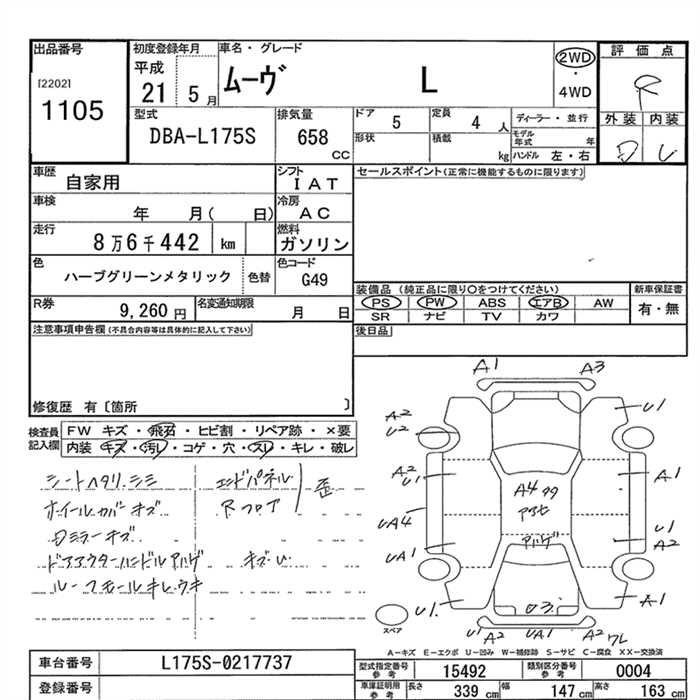 出品番号
[2202]
1105
初度登録年月
平成
21 5月
車名・グレード
ムーヴ L
2WD
・
4WD
評価点
R
外装 内装
型式
DBA-L175S
排気量
658
cc
ドア
5
定員
4 人
形状
積載
kg
ディーラー・並行
モデル年式 年
ハンドル 左・右
車歴
自家用
シフト
IAT
車検
年 月( 日)
冷房
AC
走行
8万6千442 km
燃料
ガソリン
色
ハーブグリーンメタリック
色替
色コード
G49
R券
9,260円
名変通知期限
月 日
セールスポイント(正常に機能するものに限ります)
装備品 (純正品に限り○をつけてください)
PS PW ABS エアB AW
SR ナビ TV カワ
新車保証書
有・無
後日品
注意事項申告欄(不具合内容等は具体的に記入して下さい)
修復歴 有〔箇所 〕
検査員記入欄
FW キズ・飛石・ヒビ割・リペア跡・×要
内装・キズ・汚レ・コゲ・穴・スレ・キレ・破レ
シートヘタリ、シミ
ホイールカバーキズ
Dミラーキズ
ドアアウターハンドルアハゲ
ルーフモールキレ、ウキ
エンドパネル
Rフロア
歪
キズ U
A1 A3
A2
U2
U1
A2
U1
A1
A4
UA4
U1
A2
UA1
アハゲ
U1
A1
U3
U1 A2 UA1 A2 ワレ
スペア
A―キズ E―エクボ U―凹み W―補修跡 S―サビ C―腐食 XX―交換済
車台番号
L175S-0217737
登録番号
型式指定番号
参考
15492
類別区分番号
参考
0004
車庫証明用
参考
長さ 339 cm
幅 147 cm
高さ 163 cm